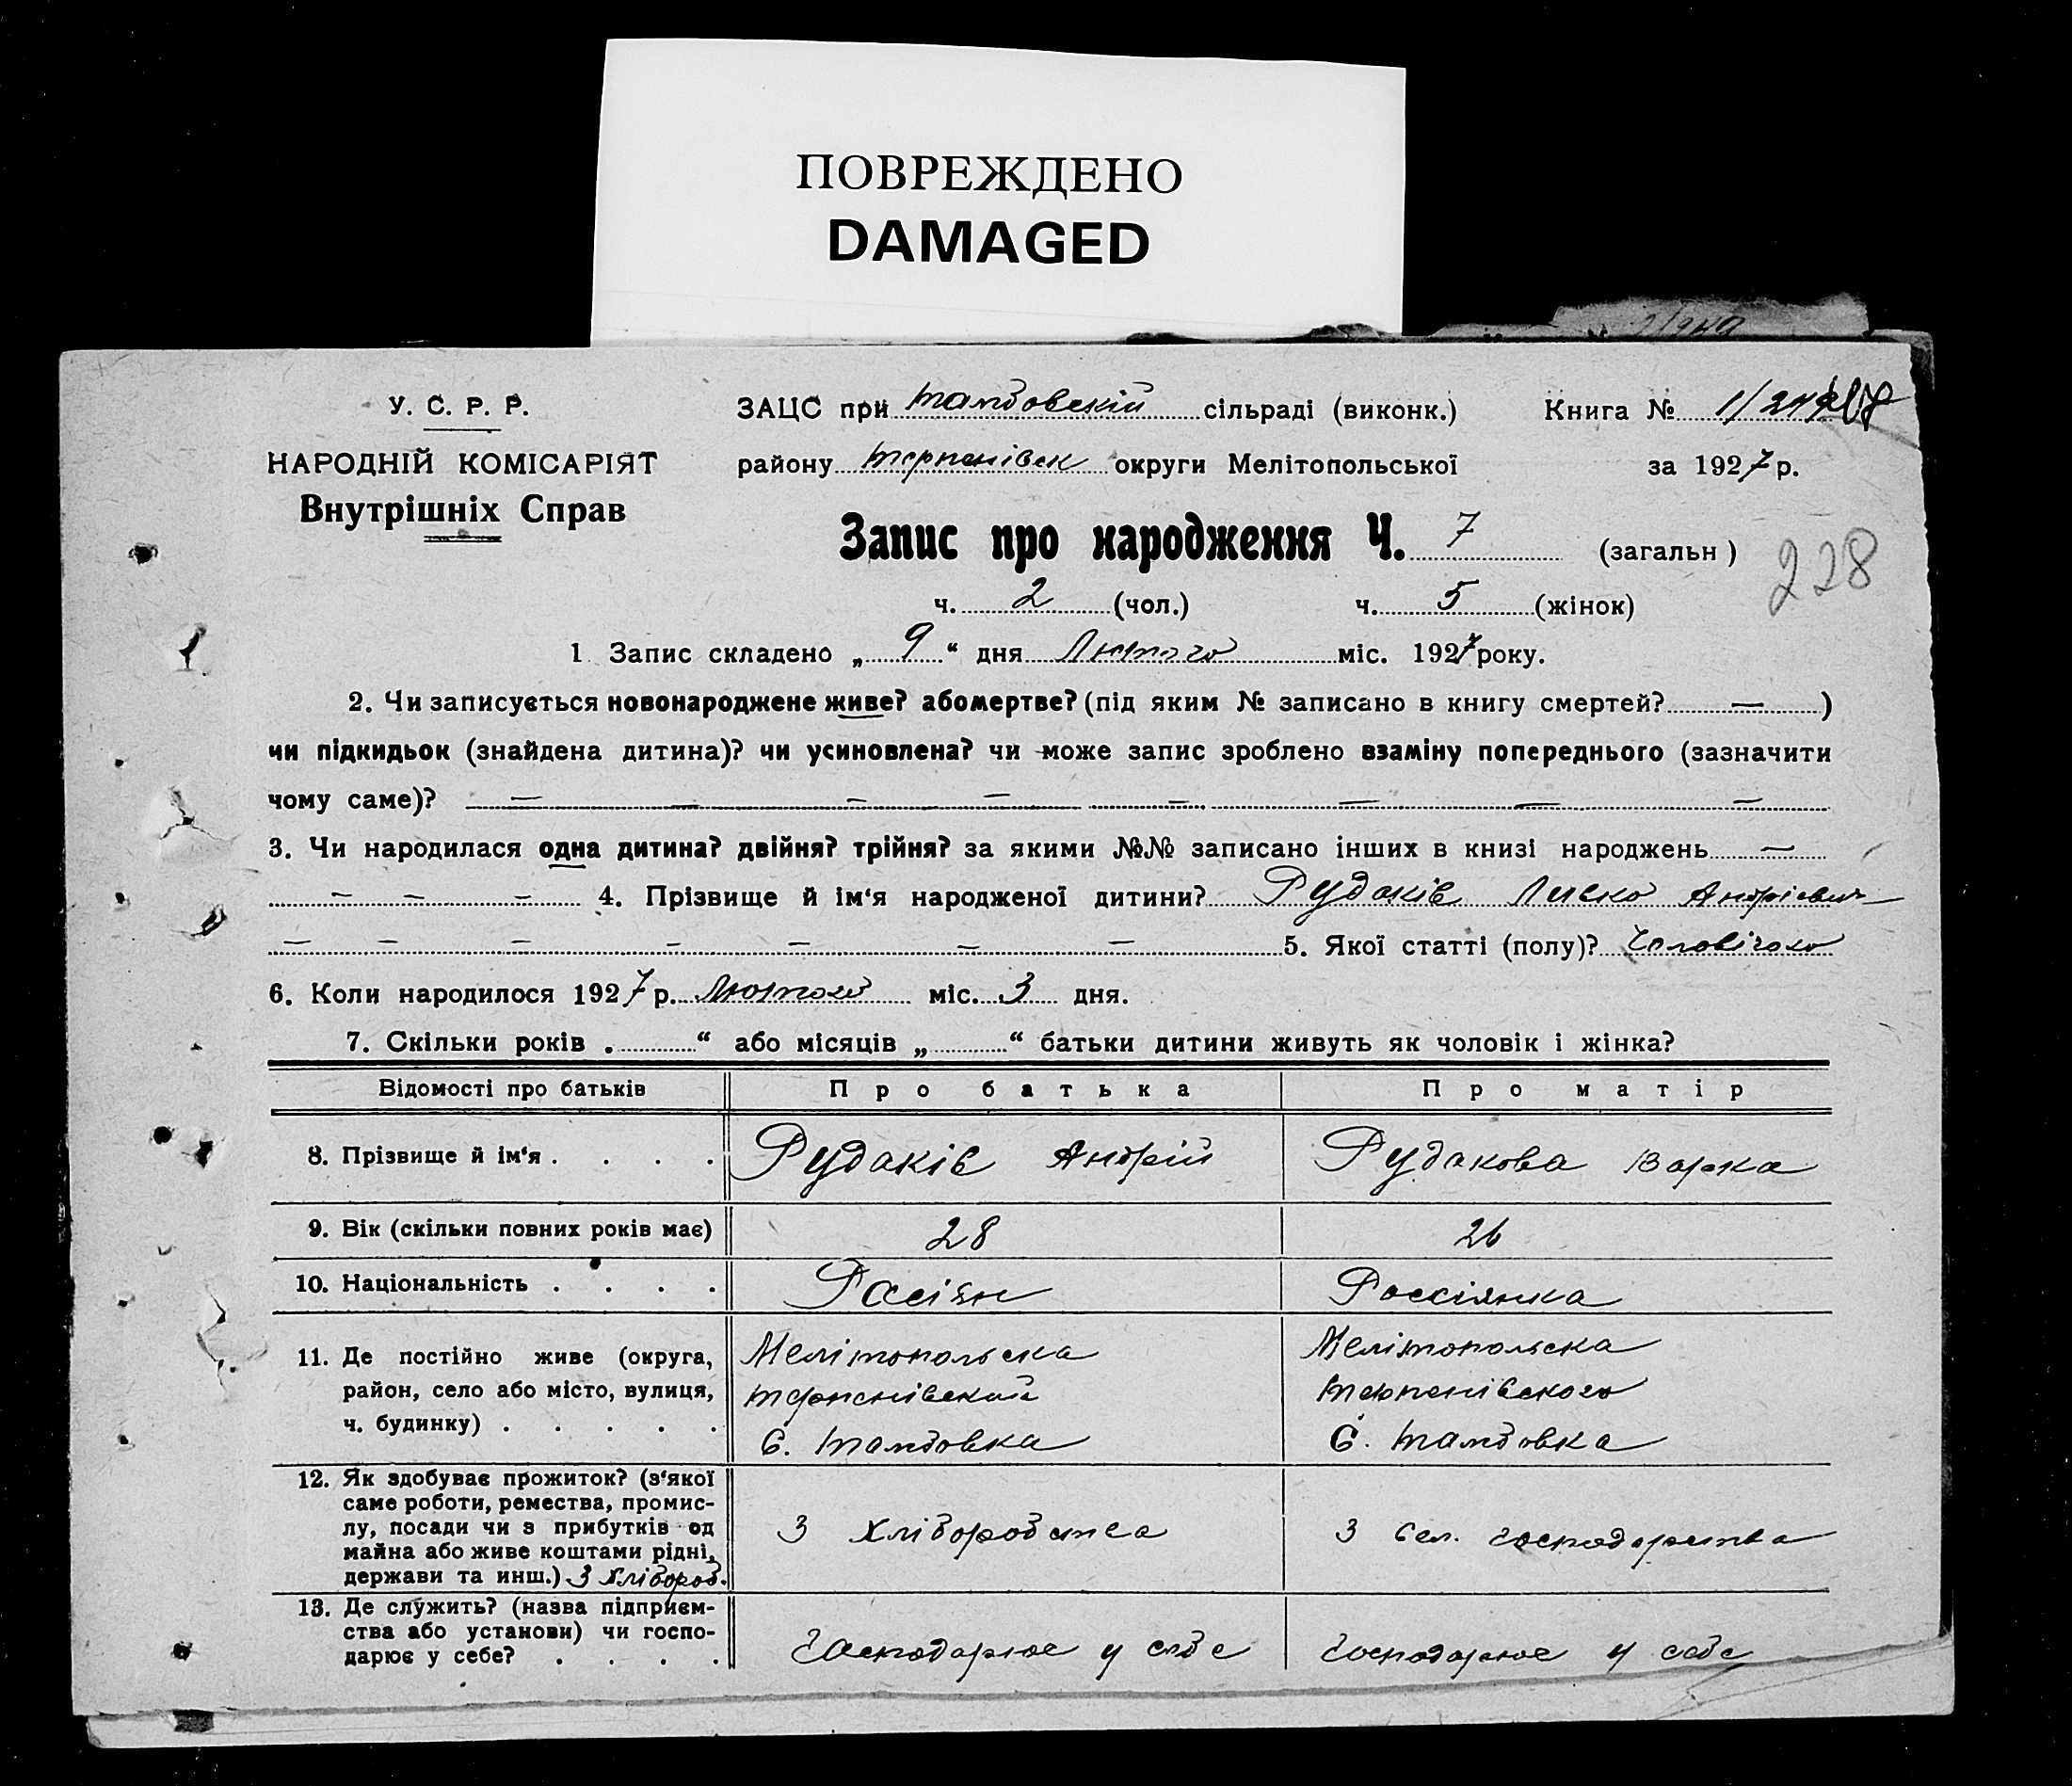 ПОВРЕЖДЕНО
DAMAGED
У. С. Р. Р.
НАРОДНІЙ КОМІСАРІЯТ
Внутрішніх Справ
ЗАЦС при Тамбовскій сільраді (виконк.) Книга №
району Терпенівск округи Мелітопольської за 1927 р.
Запис про народження Ч. 7 (загальн )
228
ч. 2 (чол.) ч. 5 (жінок)
1 Запис складено „ 9 “ дня Лютого міс. 1927 року.
2. Чи записується новонароджене живе? або мертве? (під яким № записано в книгу смертей? — )
чи підкидьок (знайдена дитина)? чи усиновлена? чи може запис зроблено взаміну попереднього (зазначити
чому саме)? — — — — — — — —
3. Чи народилася одна дитина? двійня? трійня? за якими №№ записано інших в книзі народжень —
— — — 4. Прізвище й ім‘я народженої дитини? Рудаків Андрієвич
— — — — — — — 5. Якої статті (полу)? Чоловічого
6. Коли народилося 1927 р. Лютого міс. 3 дня.
7. Скільки років . “ або місяців „ “ батьки дитини живуть як чоловік і жінка?
Відомості про батьків Про батька Про матір
8. Прізвище й ім‘я . . . . Рудаків Андрій Рудакова Варка
9. Вік (скільки повних років має) 28 26
10. Національність . . . . Расіян Россіянка
11. Де постійно живе (округа, район, село або місто, вулиця, ч. будинку) . . . . .
Мелітопольска
Терпенівский
С. Тамбовка
Мелітопольска
Терпенівского
С. Тамбовка
12. Як здобуває прожиток? (з‘якої
саме роботи, ремества, промис-
лу, посади чи з прибутків од
майна або живе коштами рідні,
держави та инш.) З хлібороб.
З хліборобства
З сел. господарства
13. Де служить? (назва підприєм-
ства або установи) чи госпо-
дарює у себе? . . . .
Господарює у себе
Господарює у себе